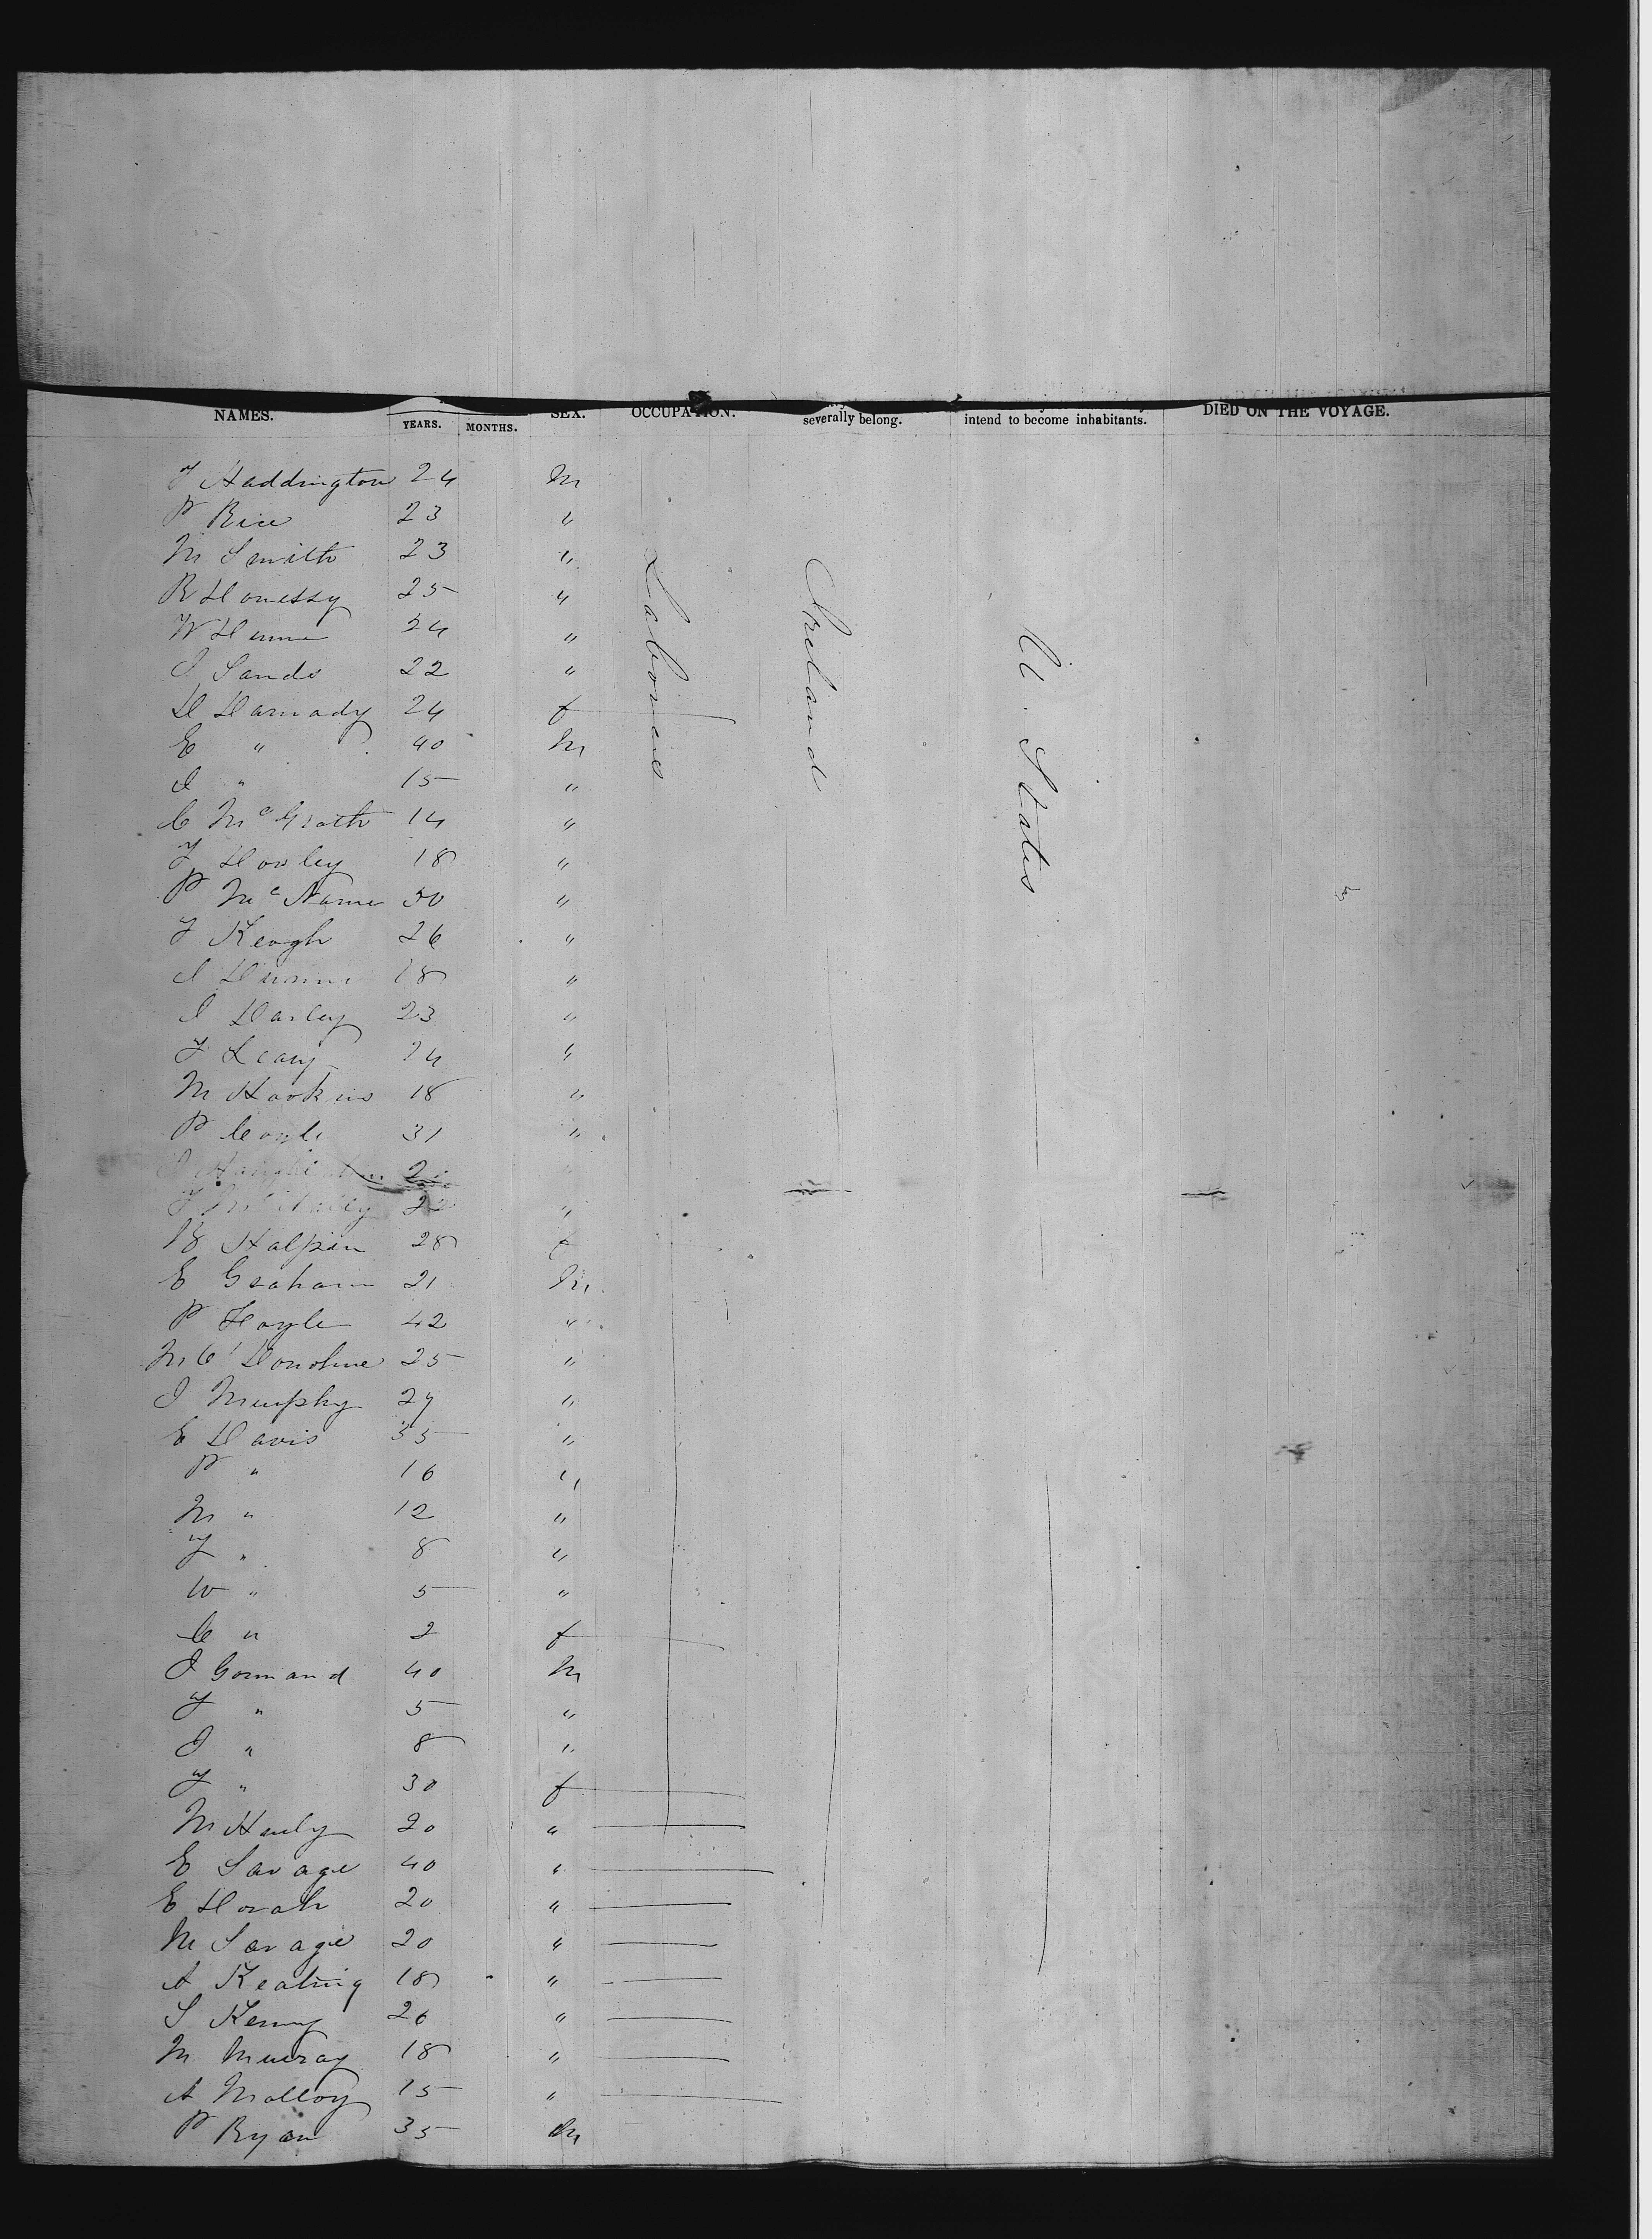 NAMES. YEARS. MONTHS. SEX. OCCUPATION. severally belong. intend to become inhabitants. DIED ON THE VOYAGE.
Laborers
Ireland
U. States
T Haddington 24 M
P Rice 23 "
M Smith 23 "
R Donessy 25 "
W Dunne 24 "
J Sands 22 "
D Darmady 24 f
E " 40 M
J " 15 "
C McGrath 14 "
T Dowley 18 "
P McName 30 "
T Keogh 26 "
J Dunne 18 "
J Darley 23 "
T Leary 24 "
M Hawkins 18 "
P Coyle 31 "
J
T 22 "
B Halpin 28 f
E Graham 21 M
P Hoyle 42 "
M O'Donohue 25 "
J Murphy 27 "
E Davis 35 "
P " 16 "
M " 12 "
T " 8 "
W " 5 "
C " 2 f
J Gormand 40 M
T " 5 "
J " 8 "
T " 30 f
M Henly 20 "
E Savage 40 "
E Dorah 20 "
M Savage 20 "
A Keating 18 "
S Kenny 26 "
M Murray 18 "
A Molloy 15 "
P Ryan 35 M